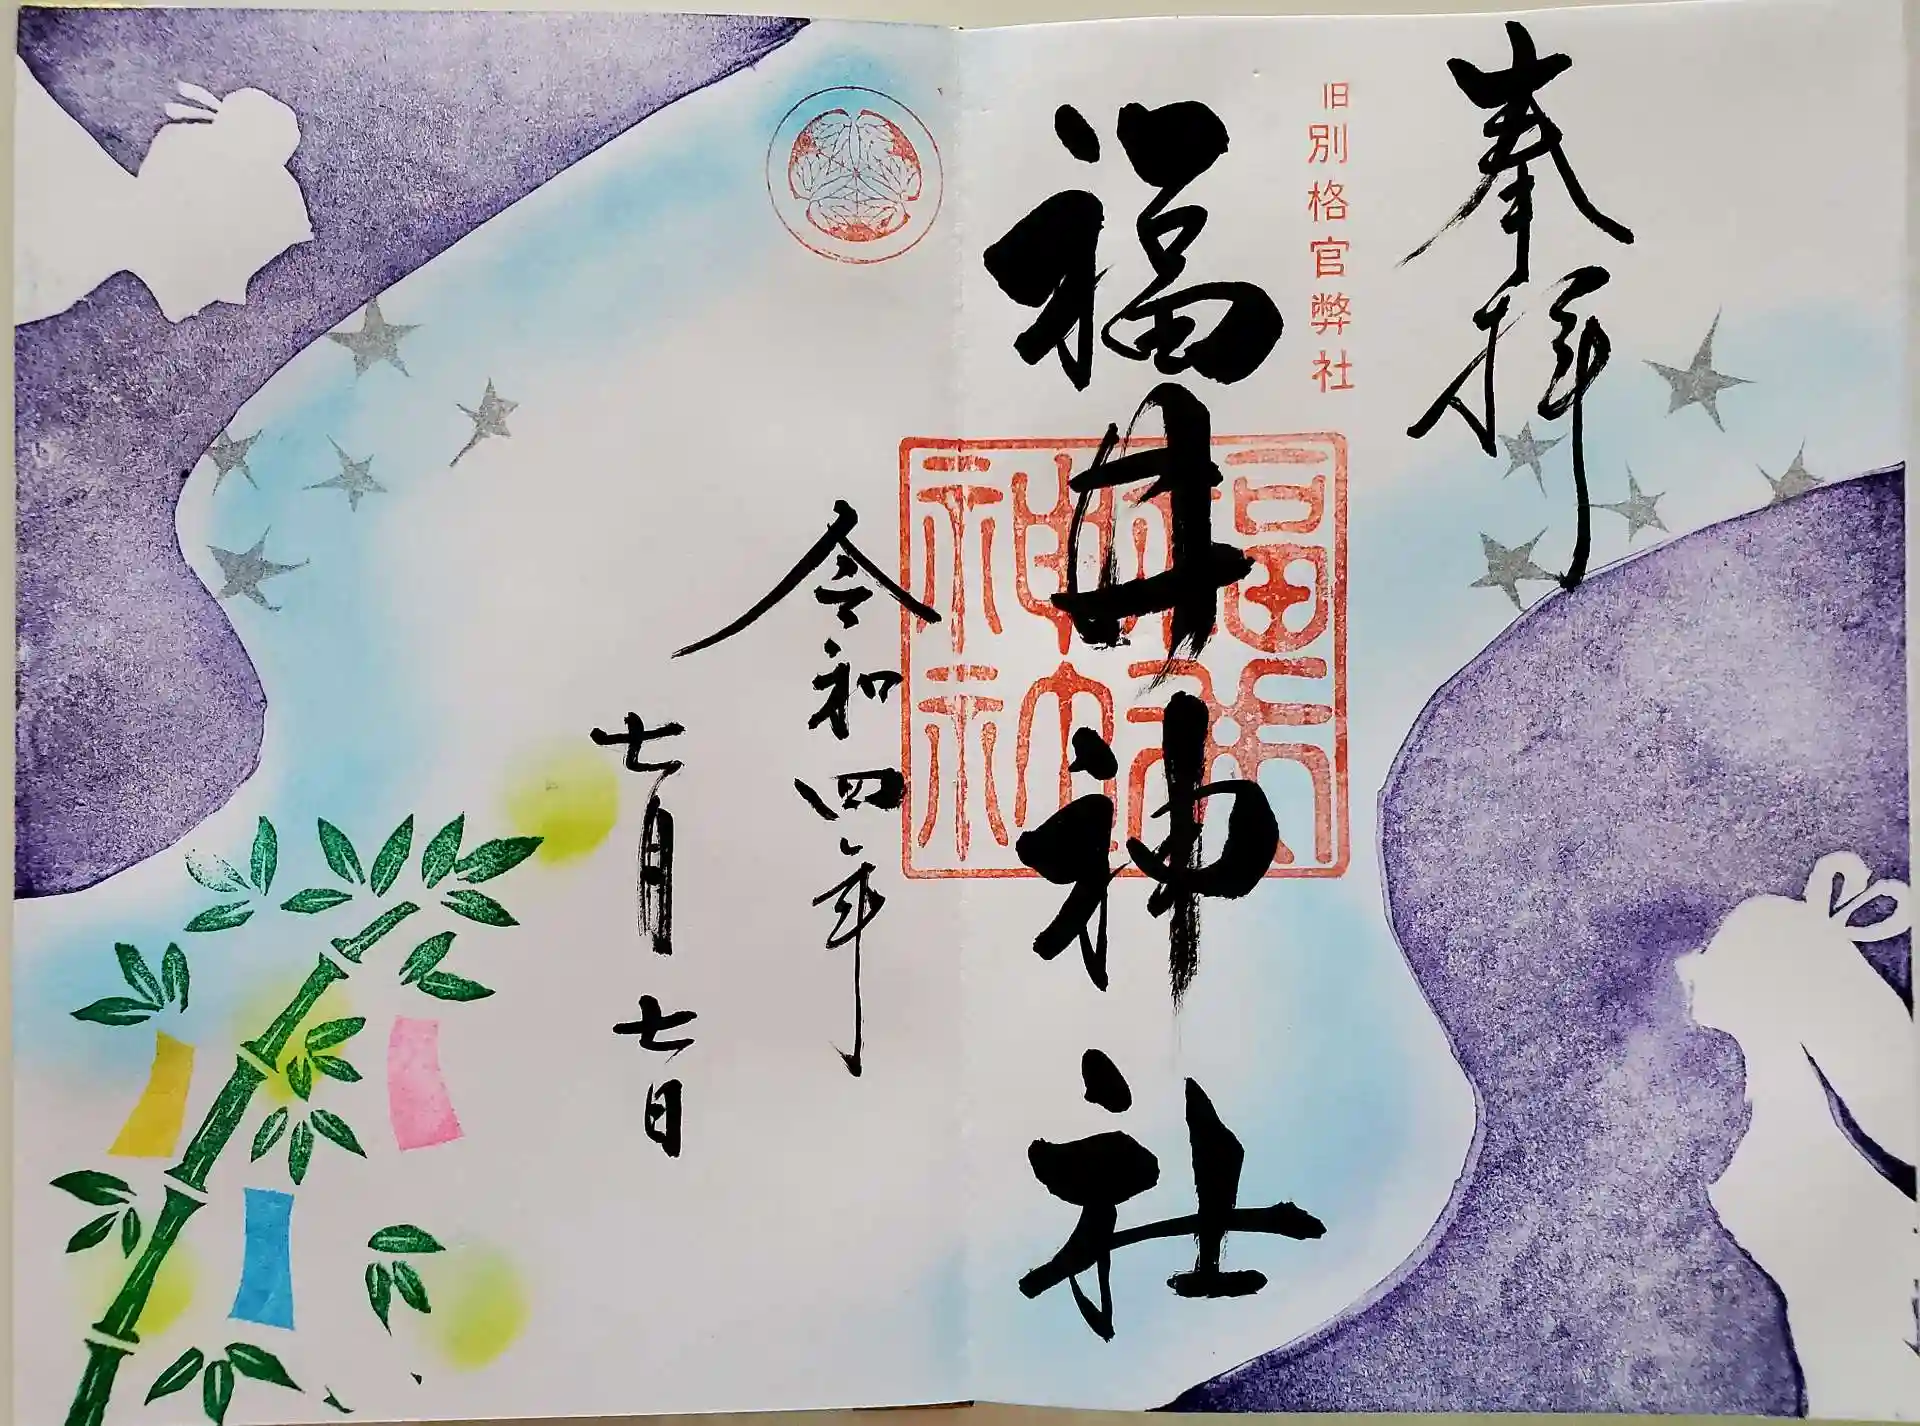 奉拝
旧別格官弊社
福井神社
令和四年
七月七日